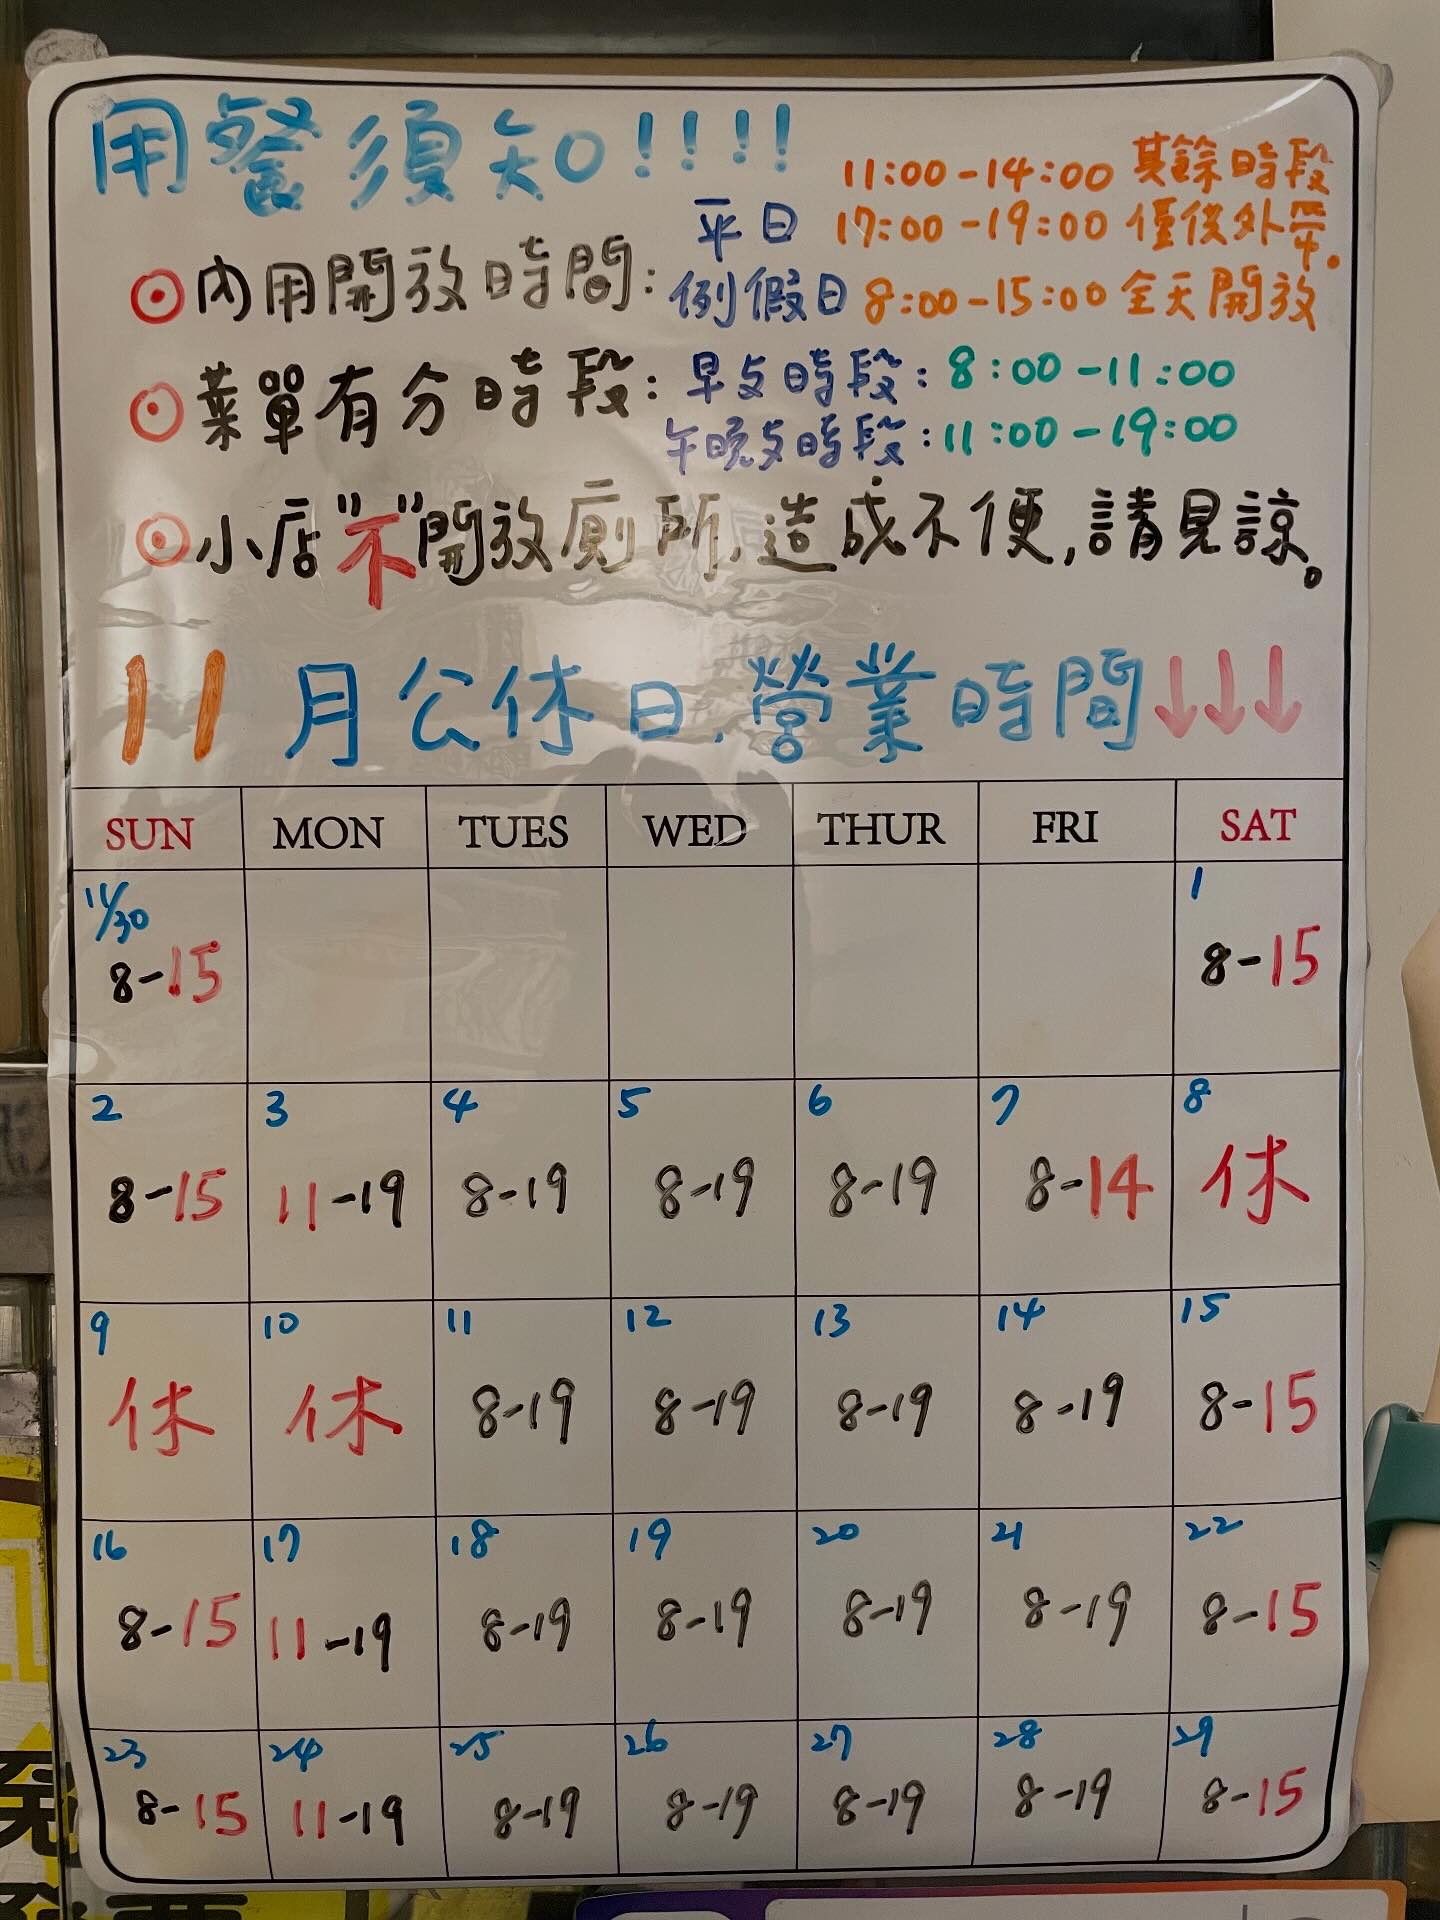 用餐須知!!!!
◎內用開放時間:
平日 11:00-14:00 17:00-19:00 其餘時段僅供外帶。
例假日 8:00-15:00 全天開放
◎菜單有分時段:早歺時段:8:00-11:00
午晚歺時段:11:00-19:00
◎小店"不"開放廁所,造成不便,請見諒。
11月公休日.營業時間↓↓↓
SUN MON TUES WED THUR FRI SAT
11/30 1
8-15 8-15
2 3 4 5 6 7 8
8-15 11-19 8-19 8-19 8-19 8-14 休
9 10 11 12 13 14 15
休 休 8-19 8-19 8-19 8-19 8-15
16 17 18 19 20 21 22
8-15 11-19 8-19 8-19 8-19 8-19 8-15
23 24 25 26 27 28 29
8-15 11-19 8-19 8-19 8-19 8-19 8-15